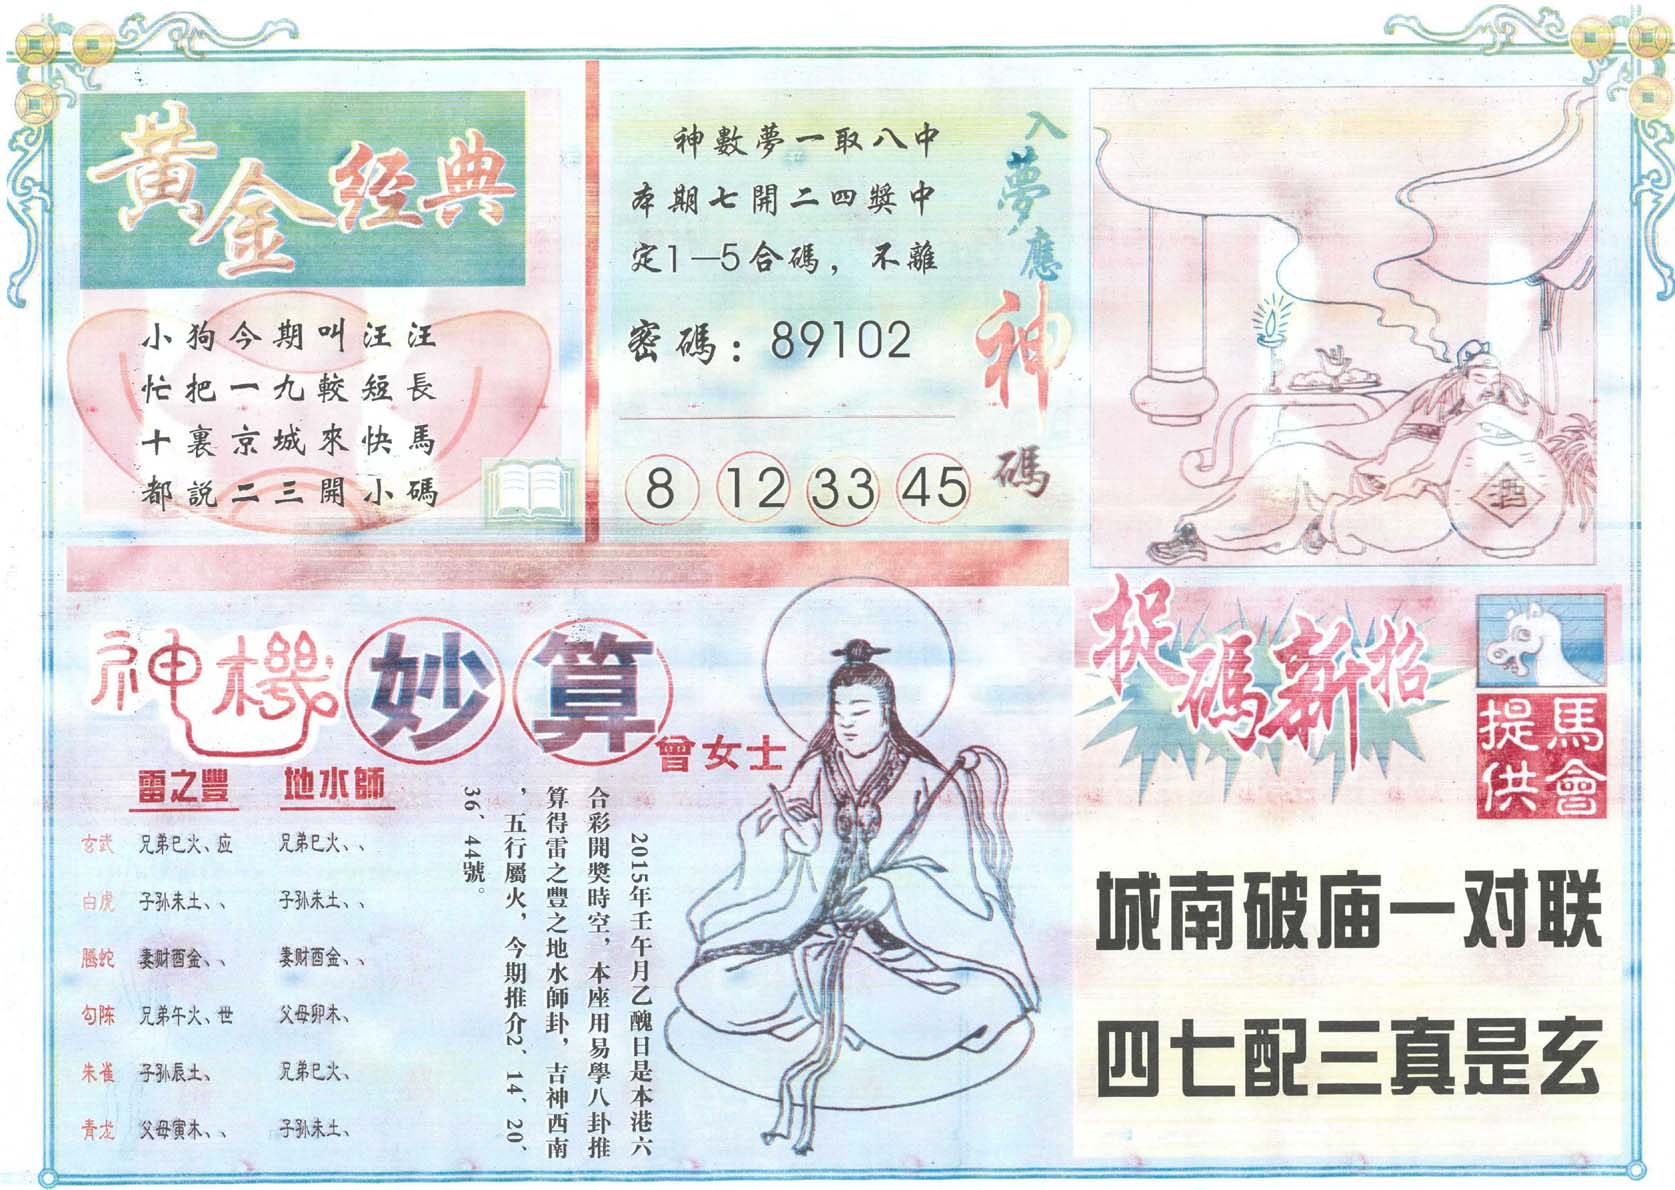 黃金經典
小狗今期叫汪汪
忙把一九較短長
十裏京城來快馬
都說二三開小碼
神數夢一取八中
本期七開二四獎中
定1—5合碼，不離
密碼：89102
8 12 33 45
入夢應神碼
酒
神機妙算
曾女士
雷之豐 地水師
玄武 兄弟巳火、应 兄弟巳火、、
白虎 子孙未土、、 子孙未土、、
螣蛇 妻财酉金、、 妻财酉金、、
勾陈 兄弟午火、世 父母卯木、
朱雀 子孙辰土、 兄弟巳火、
青龙 父母寅木、、 子孙未土、
2015年壬午月乙醜日是本港六
合彩開獎時空，本座用易學八卦推
算得雷之豐之地水師卦，吉神西南
，五行屬火，今期推介2、14、20、
36、44號。
捉碼新招
馬會
提供
城南破庙一对联
四七配三真是玄